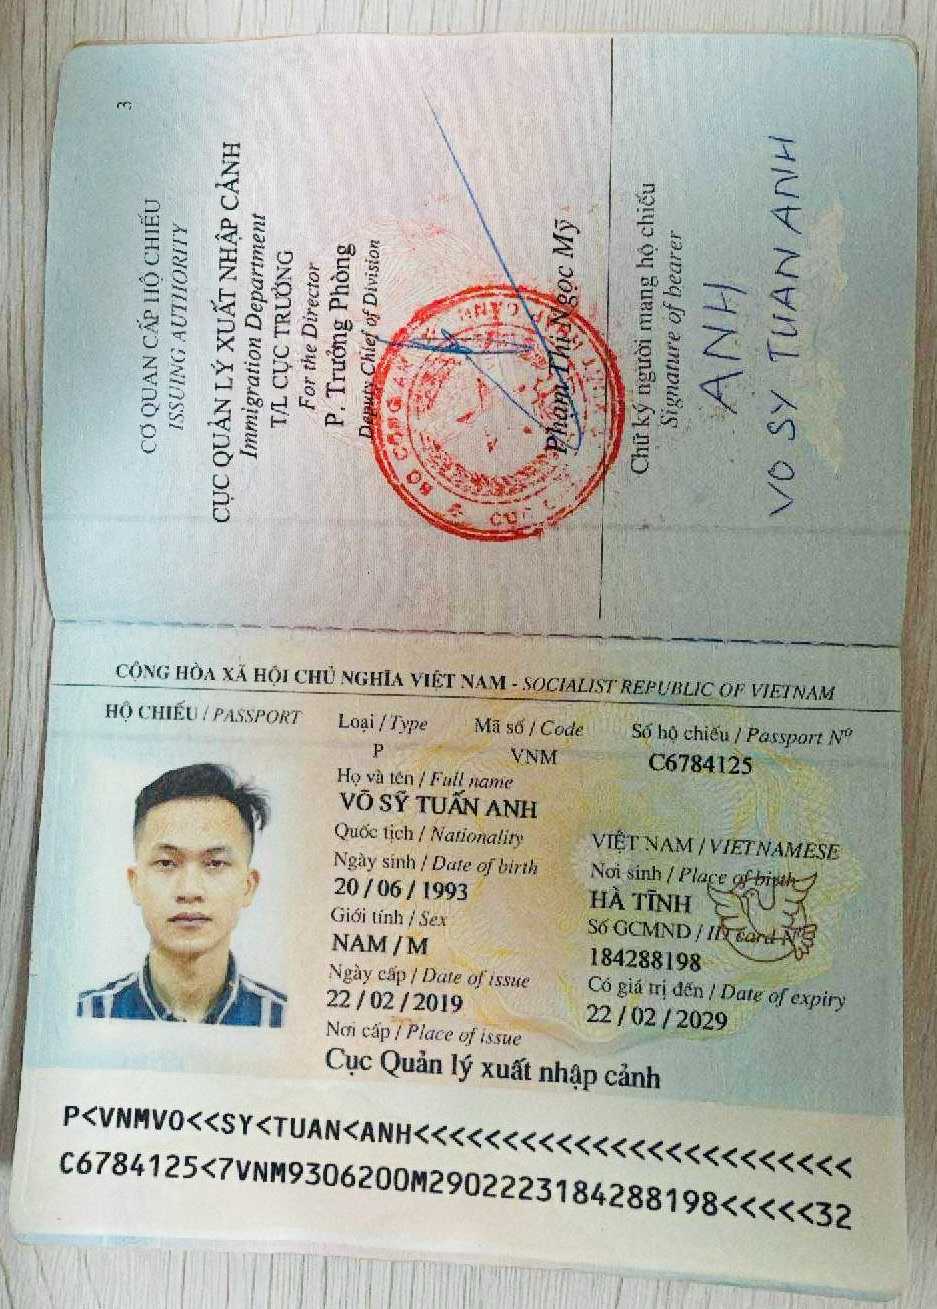 3
CƠ QUAN CẤP HỘ CHIẾU
ISSUING AUTHORITY
CỤC QUẢN LÝ XUẤT NHẬP CẢNH
Immigration Department
T/L CỤC TRƯỞNG
For the Director
P. Trưởng Phòng
Deputy Chief of Division
Phạm Thị Ngọc Mỹ
Chữ ký người mang hộ chiếu
Signature of bearer
ANH
VO SY TUAN ANH
CỘNG HÒA XÃ HỘI CHỦ NGHĨA VIỆT NAM - SOCIALIST REPUBLIC OF VIETNAM
HỘ CHIẾU / PASSPORT
Loại / Type Mã số / Code Số hộ chiếu / Passport Nº
P VNM C6784125
Họ và tên / Full name
VÕ SỸ TUẤN ANH
Quốc tịch / Nationality VIỆT NAM / VIETNAMESE
Ngày sinh / Date of birth Nơi sinh / Place of birth
20 / 06 / 1993 HÀ TĨNH
Giới tính / Sex Số GCMND / ID card Nº
NAM / M 184288198
Ngày cấp / Date of issue Có giá trị đến / Date of expiry
22 / 02 / 2019 22 / 02 / 2029
Nơi cấp / Place of issue
Cục Quản lý xuất nhập cảnh
P<VNMVO<<SY<TUAN<ANH<<<<<<<<<<<<<<<<<<<<<<<<
C6784125<7VNM9306200M2902223184288198<<<<<32